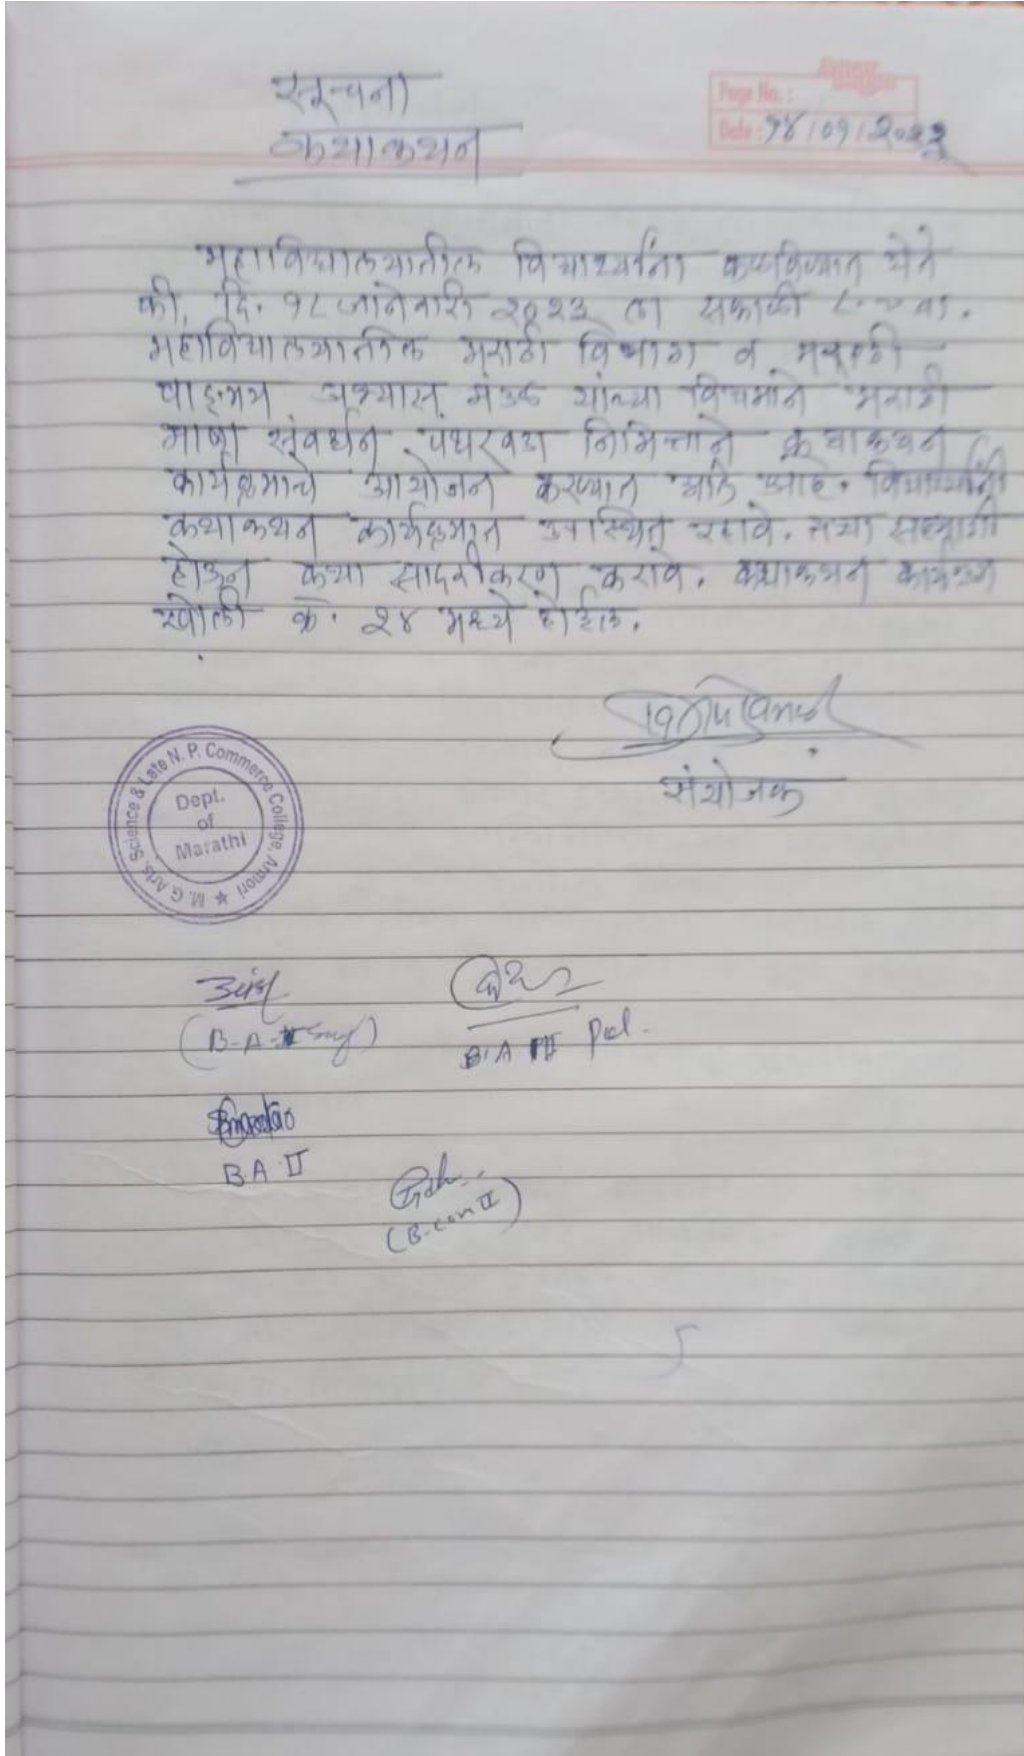 सूचना
कथाकथन
Page No. :
Date : १४/०१/२०२३
महाविद्यालयातील विद्यार्थ्यांना कळविण्यात येते
की, दि. १८ जानेवारी २०२३ ला सकाळी ८.०० वा.
महाविद्यालयातील मराठी विभाग व मराठी
वाङ्मय अभ्यास मंडळ यांच्या विद्यमाने मराठी
भाषा संवर्धन पंधरवडा निमित्ताने कथाकथन
कार्यक्रमाचे आयोजन करण्यात आले आहे. विद्यार्थ्यांनी
कथाकथन कार्यक्रमात उपस्थित रहावे. तथा सहभागी
होऊन कथा सादरीकरण करावे. कथाकथन कार्यक्रम
खोली क्र. २४ मध्ये होईल.
संयोजक
M. G. Arts, Science & Late N. P. Commerce College, Armori
Dept.
of
Marathi
(B-A-
B.A
B.A II
(B.com II)